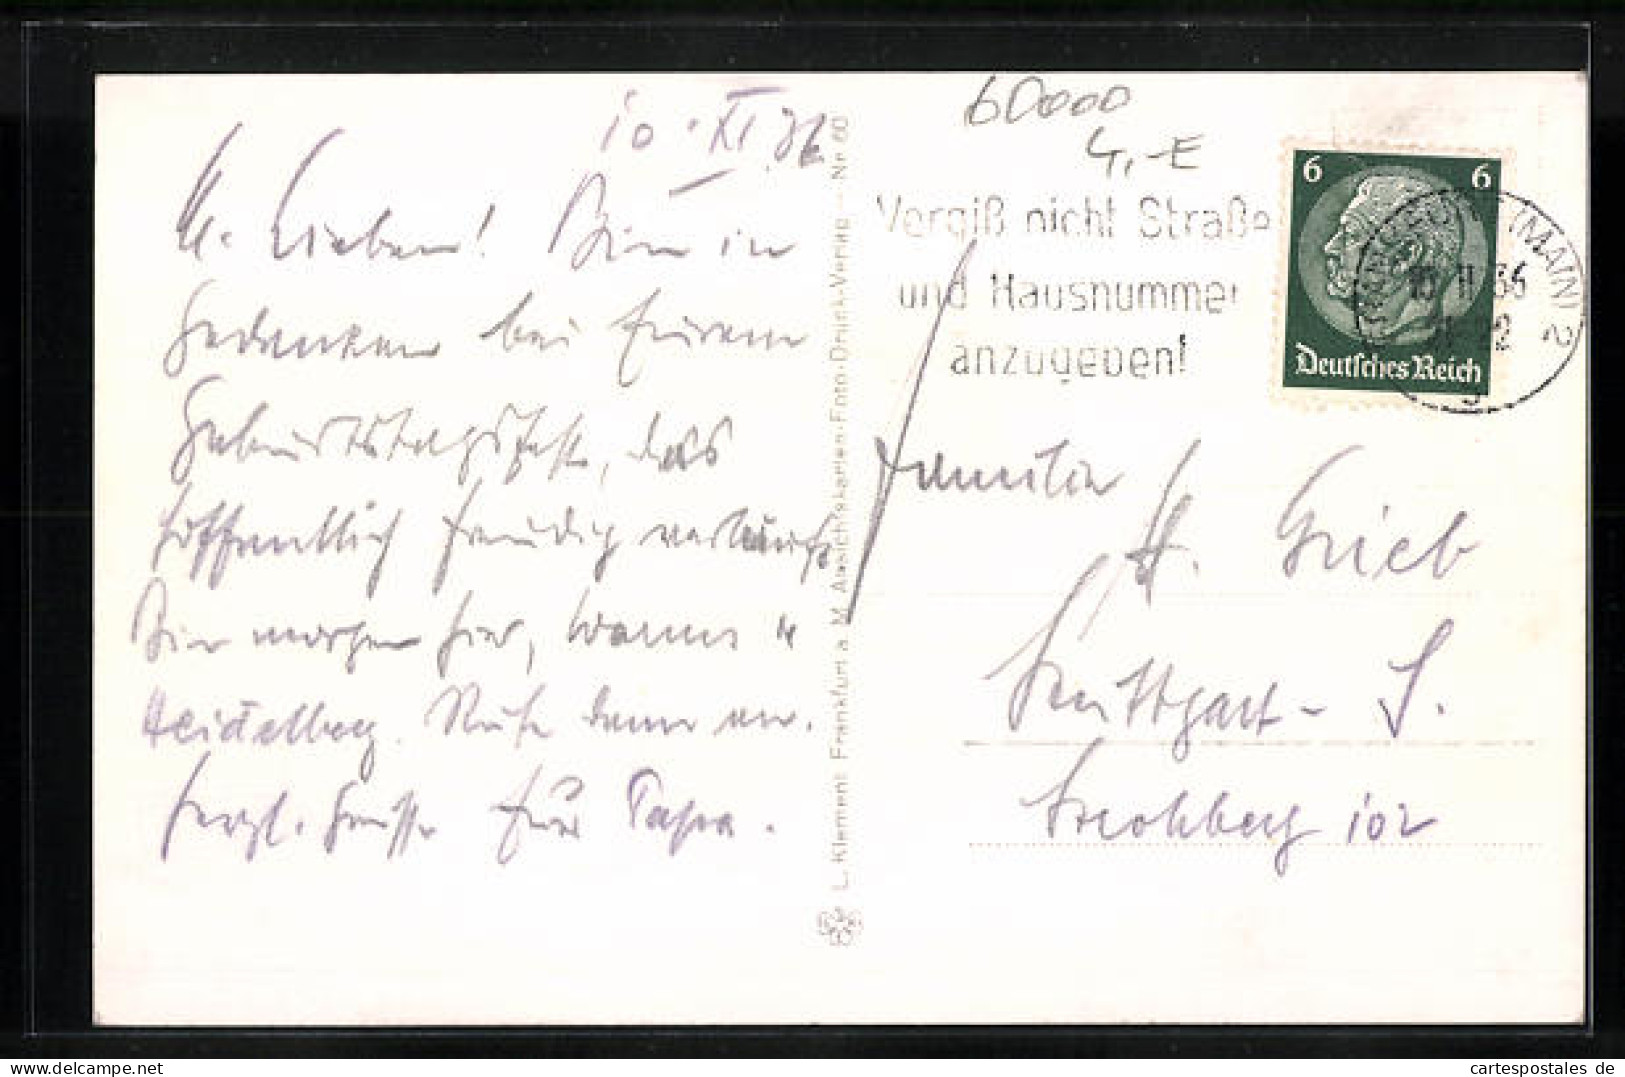 10. XI. 36
M. Lieben! Bin in
Gedanken bei Eurem
Geburtstagsfeste, das
hoffentlich freudig verläuft.
Bin morgen hier,
Heidelberg. Rufe dann an.
Herzl. Grüsse für Papa.
L. Klement Frankfurt a. M. Ansichtskarten-Foto-Druck-Verlag — Nr 60
60000
4,-E
Vergiß nicht Straße
und Hausnummer
anzugeben!
6 6
Deutsches Reich
(MAIN) 2
36
Familie
H. Grieb
Stuttgart - S.
102
cartespostales de